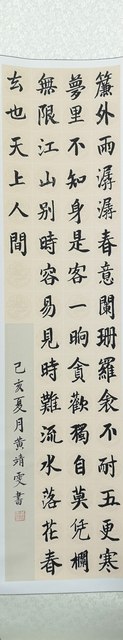 簾外雨潺潺春意闌珊羅衾不耐五更寒
夢里不知身是客一晌貪歡獨自莫凭欄
無限江山别時容易見時難流水落花春
去也天上人間
己亥夏月黄靖雯書